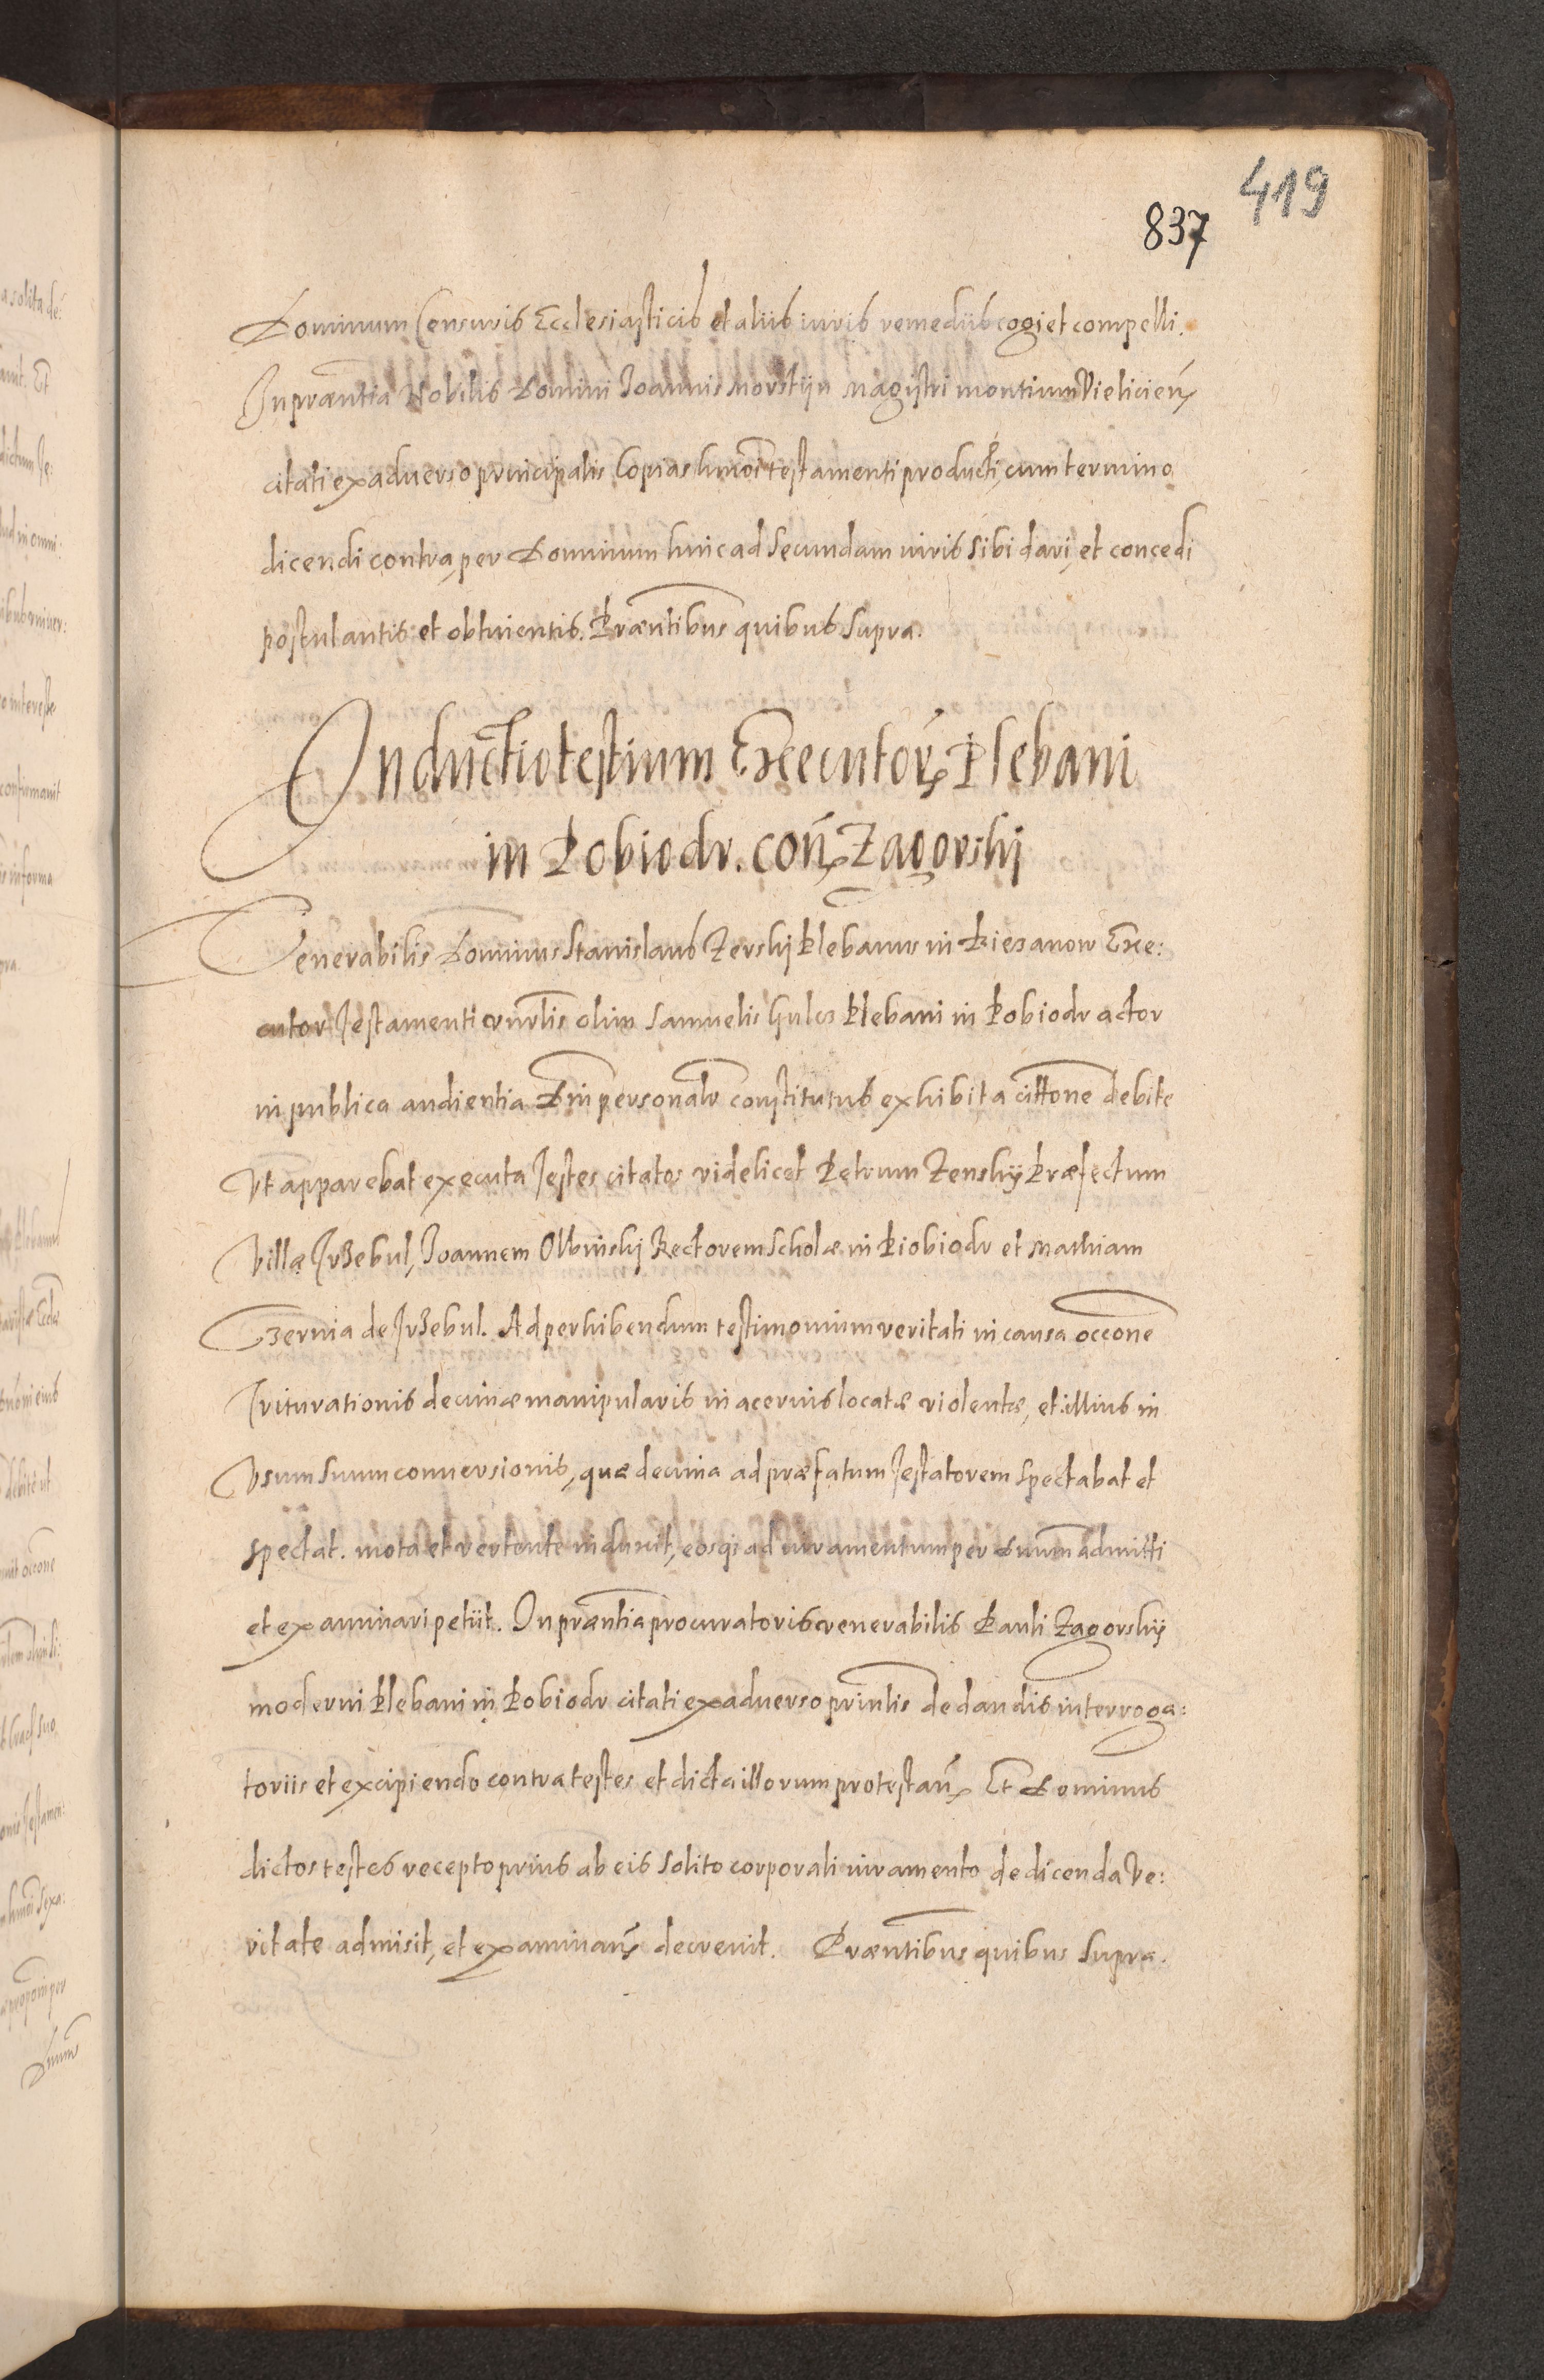 419
837
Dominum Censuris Ecclesiasticis et aliis iuris remediis cogi et compelli.
In præntia Nobilis Domini Joannis Morstijn Magistri montium Vielicień
citati ex adverso principalis Copias hmōi testamenti producti, cum termino
dicendi contra, per Dominum huic ad secundam iuris sibi dari, et concedi
postulantis et obtinentis. Præntibus quibus supra.
Inductio testium Executor Plebani
in Pobiedr. coñ Zagorskj
Venerabilis Dominus Stanislaus Zerskj Plebanus in Biezanow Exe:
cutor Testamenti vnrlis olim Samuelis Gulcz Plebani in Pobiedr actor
in publica audientia Dni personalr constitutus exhibita cittone debite
Vt apparebat executa Testes citatos videlicet Petrum Zenskij Præfectum
Villæ Trzebul, Joannem Olbinskj Rectorem Scholæ in Piobiedr et Mathiam
Czernia de Trzebul. Ad perhibendum testimonium veritati in causa occone
Triturationis decimæ manipularis in acervis locatæ violentæ, et illius in
Vsum suum conversionis, quæ decima ad præfatum Testatorem spectabat et
spectat. mota et vertente induxit, eosq ad iuramentum per Dnum admitti
et examinari petiit. In præntia procuratoris venerabilis Pauli Zagorskij
moderni Plebani in Pobiedr citati ex adverso prinlis de dandis interroga:
toriis et excipiendo contra testes et dicta illorum protestañ Et Dominus
dictos testes recepto prius ab eis solito corporali iuramento de dicenda Ve:
ritate admisit, et examinañ decrevit. Præntibus quibus supra.